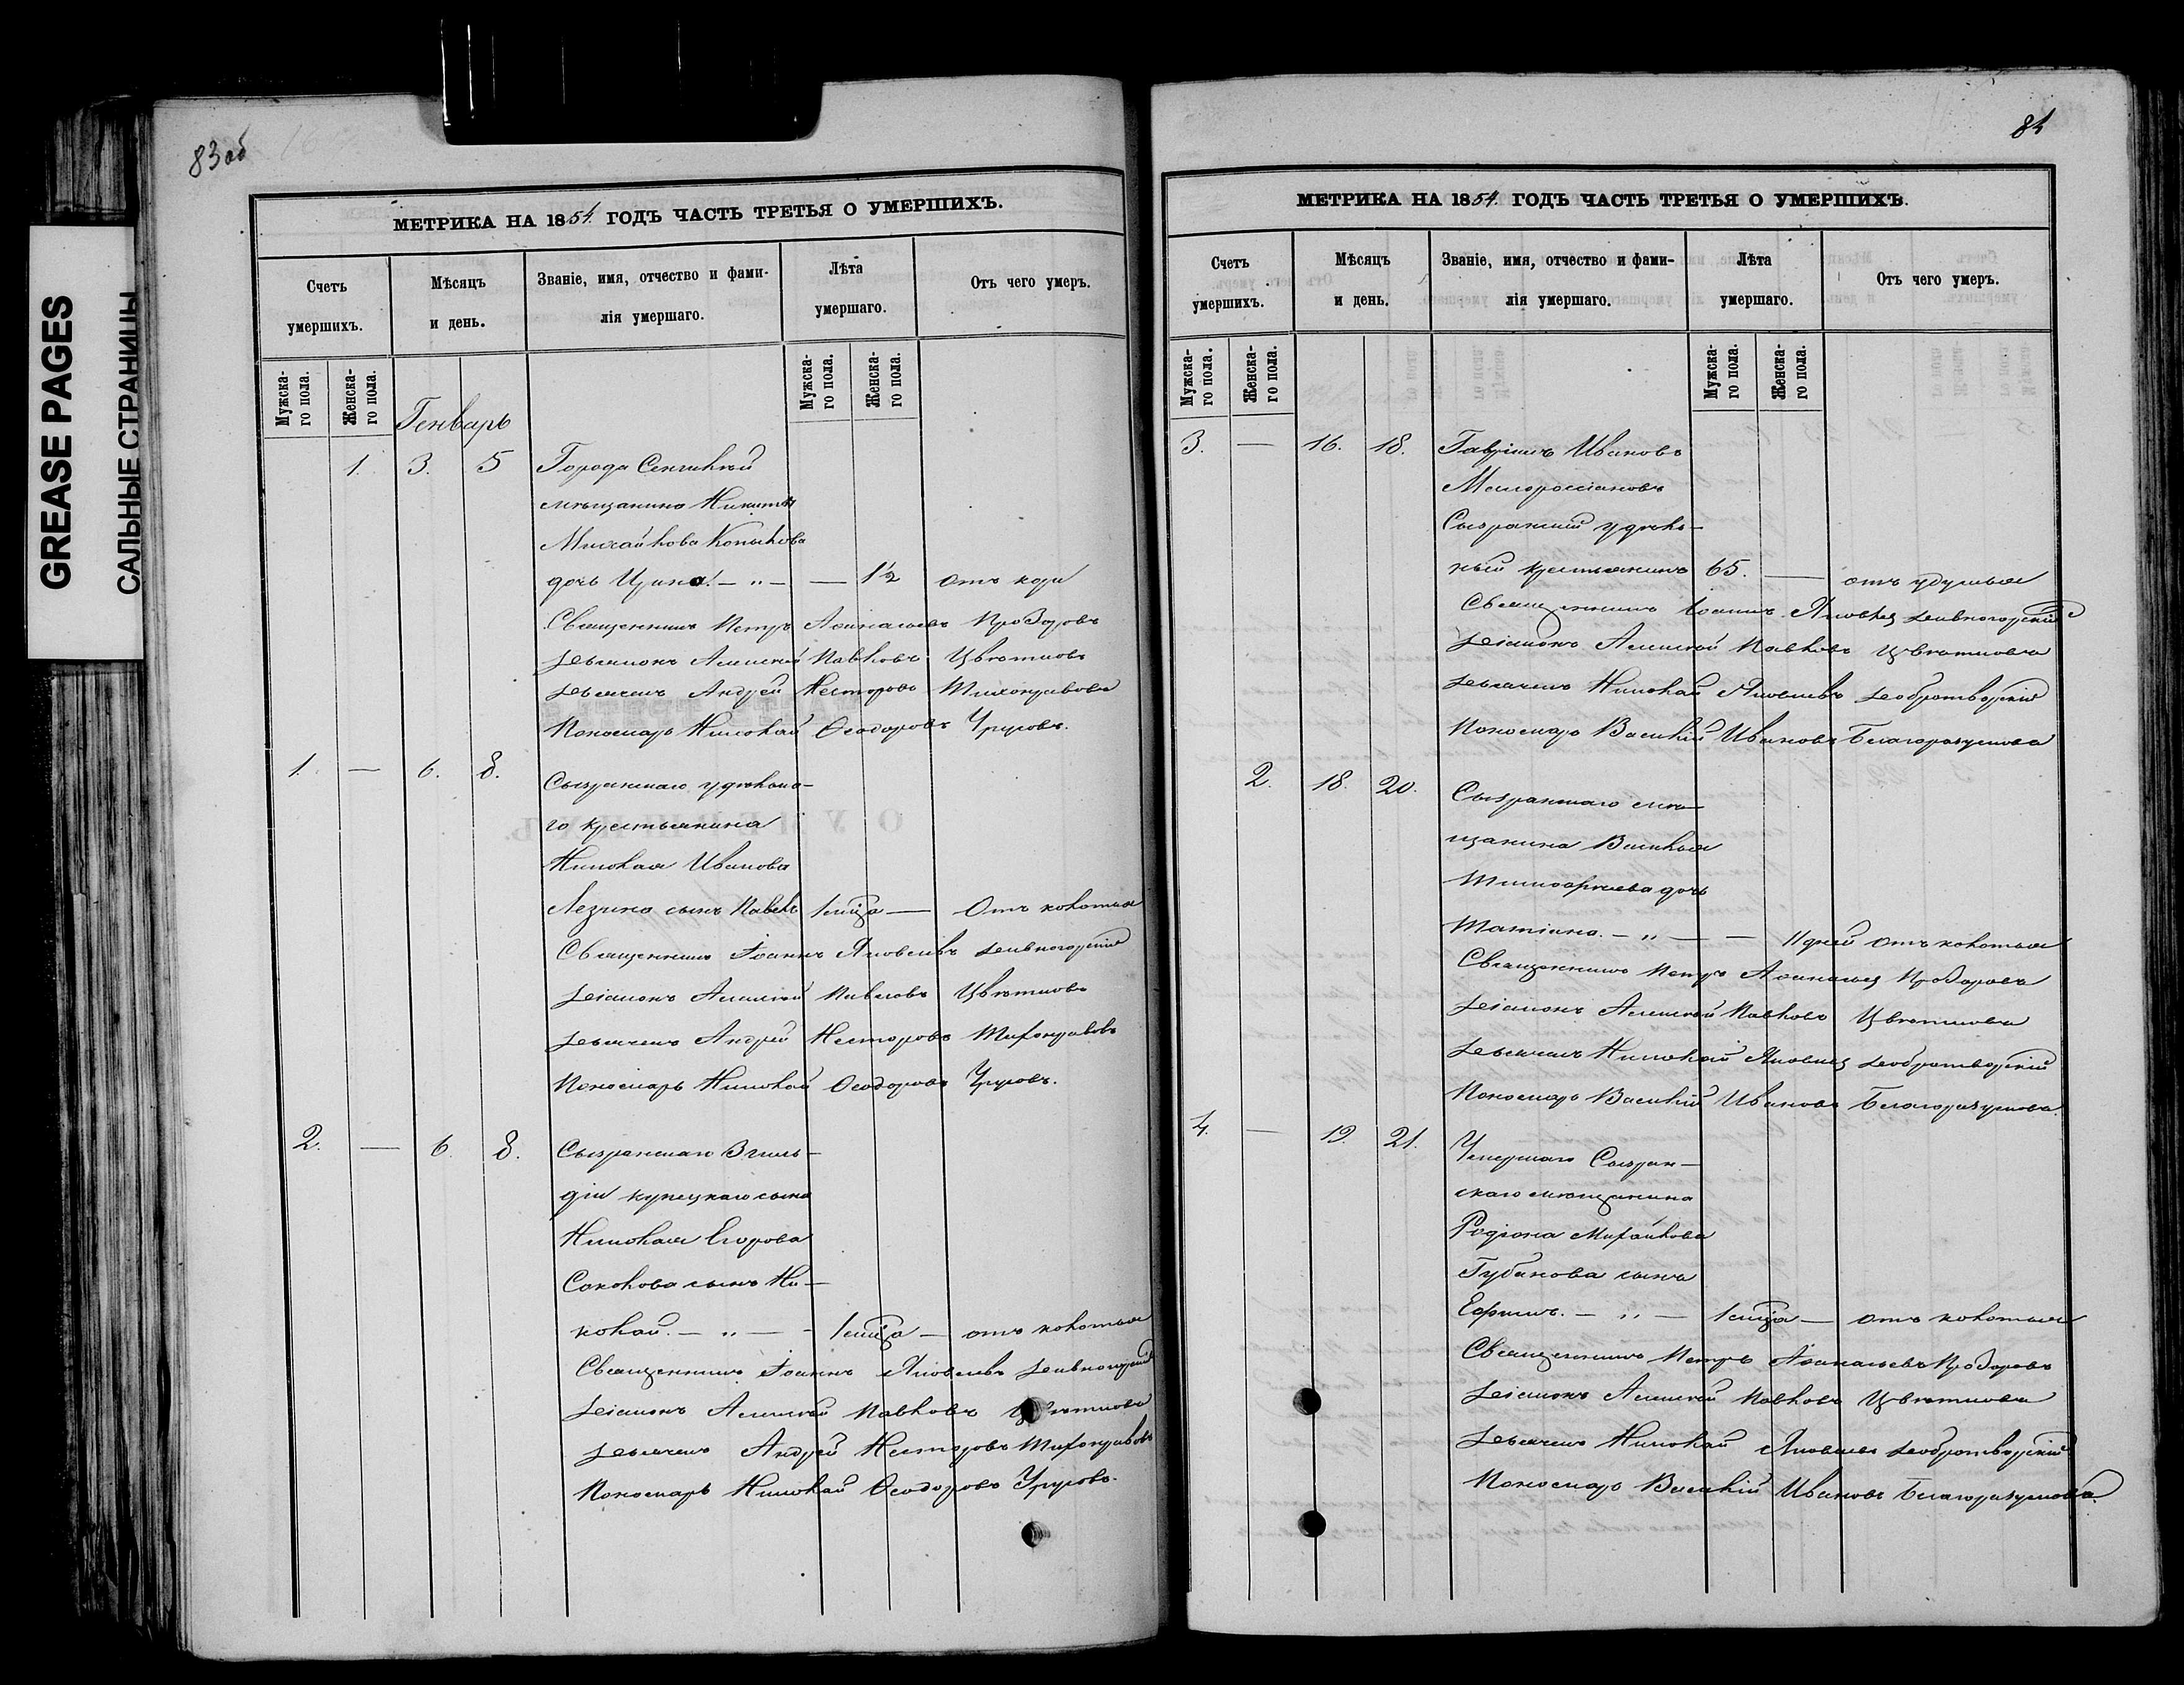 GREASE PAGES
САЛЬНЫЕ СТРАНИЦЫ
83 об
МЕТРИКА НА 1854. ГОДЪ ЧАСТЬ ТРЕТЬЯ О УМЕРШИХЪ.
Счетъ умершихъ.
Мѣсяцъ и день.
Званіе, имя, отчество и фами-
лія умершаго.
Лѣта умершаго.
Отъ чего умеръ.
Мужска-
го пола.
Женска-
го пола.
Мужска-
го пола.
Женска-
го пола.
Генварь
1. 3. 5 Города
мѣщанина Никиты
Михайлова
дочь Ирина. — „ — — 1½ отъ кори
Священникъ Петръ Аѳанасьевъ
Дьяконъ Алексѣй Павловъ Цвѣтковъ
Дьячекъ Андрей Несторовъ Тихонравовъ
Пономарь Николай Ѳеодоровъ
1. — 6. 8. Сызранскаго удѣльна-
го крестьянина
Николая Иванова
Лезина сынъ Павелъ 1 мца — Отъ колотья
Священникъ Іоаннъ Яковлевъ Дивногорскій
Діаконъ Алексѣй Павловъ Цвѣтковъ
Дьячекъ Андрей Несторовъ Тихонравовъ
Пономарь Николай Ѳеодоровъ
2. — 6. 8. Сызранскаго 3 гиль-
діи купецкаго сына
Николая Егорова
Соколова сынъ Ни-
колай. — „ — - 1 мца — отъ колотья
Священникъ Іоаннъ Яковлевъ Дивногорскій
Діаконъ Алексѣй Павловъ Цвѣтковъ
Дьячекъ Андрей Несторовъ Тихонравовъ
Пономарь Николай Ѳеодоровъ
84
МЕТРИКА НА 1854. ГОДЪ ЧАСТЬ ТРЕТЬЯ О УМЕРШИХЪ.
Счетъ умершихъ.
Мѣсяцъ и день.
Званіе, имя, отчество и фами-
лія умершаго.
Лѣта умершаго.
Отъ чего умеръ.
Мужска-
го пола.
Женска-
го пола.
Мужска-
го пола.
Женска-
го пола.
3. — 16. 18. Гавріилъ Ивановъ
Малороссіяновъ
Сызранскій удѣль-
ный крестьянинъ 65. — отъ удушья
Священникъ Іоаннъ Яковлев Дивногорскій
Діаконъ Алексѣй Павловъ Цвѣтковъ
Дьячекъ Николай Яковлевъ Добротворскій
Пономарь Василій Ивановъ Благоразумовъ
2. 18. 20. Сызранскаго мѣ-
щанина Василья
Тимоѳеева дочь
Татіана. — „ — — 11 дней отъ колотья
Священникъ Петръ Аѳанасьев
Діаконъ Алексѣй Павловъ Цвѣтковъ
Дьячекъ Николай Яковлев Добротворскій
Пономарь Василій Ивановъ Благоразумовъ.
4. — 19. 21. Умершаго Сызран-
скаго мѣщанина
Родіона Михайлова
Губанова сынъ
Ефимъ. — „ — 1 мца — отъ колотья
Священникъ Петръ Аѳанасьевъ
Діаконъ Алексѣй Павловъ Цвѣтковъ
Дьячекъ Николай Яковлевъ Добротворскій
Пономарь Василій Ивановъ Благоразумовъ.